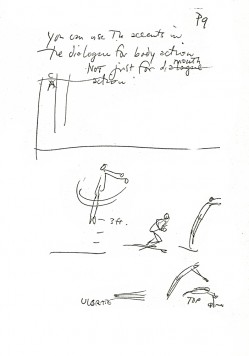 P9
you can use the accents in
the dialogue for body action
NOT just for dialogue mouth
action!
C
A
3 ft.
TOP